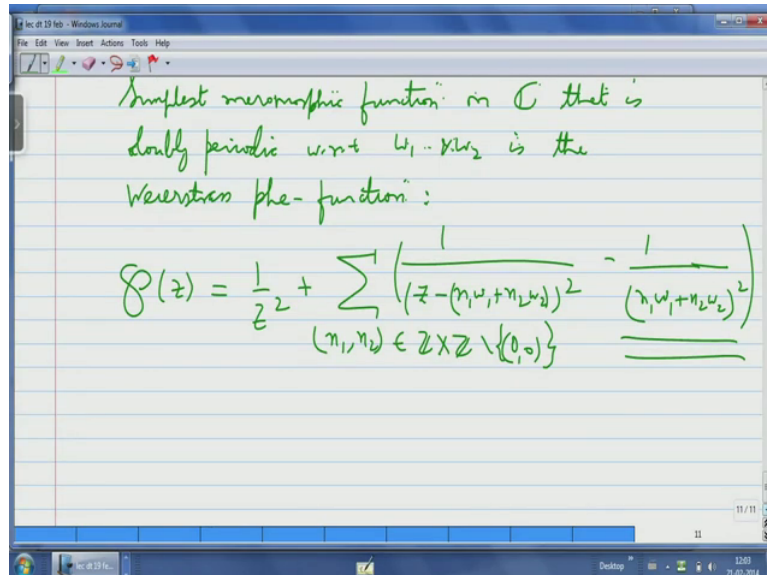 lec dt 19 feb - Windows Journal
File Edit View Insert Actions Tools Help
Simplest meromorphic function in ℂ that is
doubly periodic w.r.t ω₁ & ω₂ is the
Weierstrass phe-function :
℘(z) = 1/z² + ∑ (1/(z-(n₁ω₁+n₂ω₂))² - 1/(n₁ω₁+n₂ω₂)²)
(n₁,n₂) ∈ ℤ×ℤ \ {(0,0)}
11 / 11
11
lec dt 19 fe...
Desktop
12:03
21-02-2014